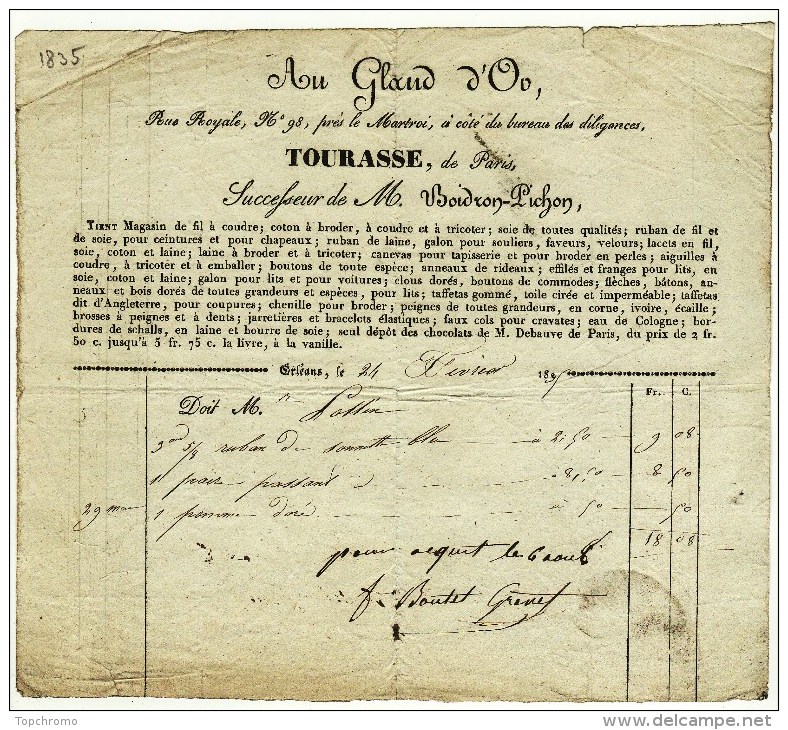 1835
Au Gland d'Or,
Rue Royale, N.° 98, près le Martroi, à côté du bureau des diligences,
TOURASSE, de Paris,
Successeur de M. Boidron-Pichon,
TIENT Magasin de fil à coudre; coton à broder, à coudre et à tricoter; soie de toutes qualités; ruban de fil et
de soie, pour ceintures et pour chapeaux; ruban de laine, galon pour souliers, faveurs, velours; lacets en fil,
soie, coton et laine; laine à broder et à tricoter; canevas pour tapisserie et pour broder en perles; aiguilles à
coudre, à tricoter et à emballer; boutons de toute espèce; anneaux de rideaux; effilés et franges pour lits, en
soie, coton et laine; galon pour lits et pour voitures; clous dorés, boutons de commodes; flèches, bâtons, an-
neaux et bois dorés de toutes grandeurs et espèces, pour lits; taffetas gommé, toile cirée et imperméable; taffetas
dit d'Angleterre, pour coupures; chenille pour broder; peignes de toutes grandeurs, en corne, ivoire, écaille;
brosses à peignes et à dents; jarretières et bracelets élastiques; faux cols pour cravates; eau de Cologne; bor-
dures de schalls, en laine et bourre de soie; seul dépôt des chocolats de M. Debauve de Paris, du prix de 2 fr.
50 c. jusqu'à 5 fr. 75 c. la livre, à la vanille.
Orléans, le 24 Février 1835
Fr. C.
Doit M.
3 5/8 ruban de bleu à 2,50 9 08
1 paire passant 8,50 8 50
29 1 pomme doré à 50 50
18 08
pour acquit le 6 aout
Boutet Grenet
Topchromo